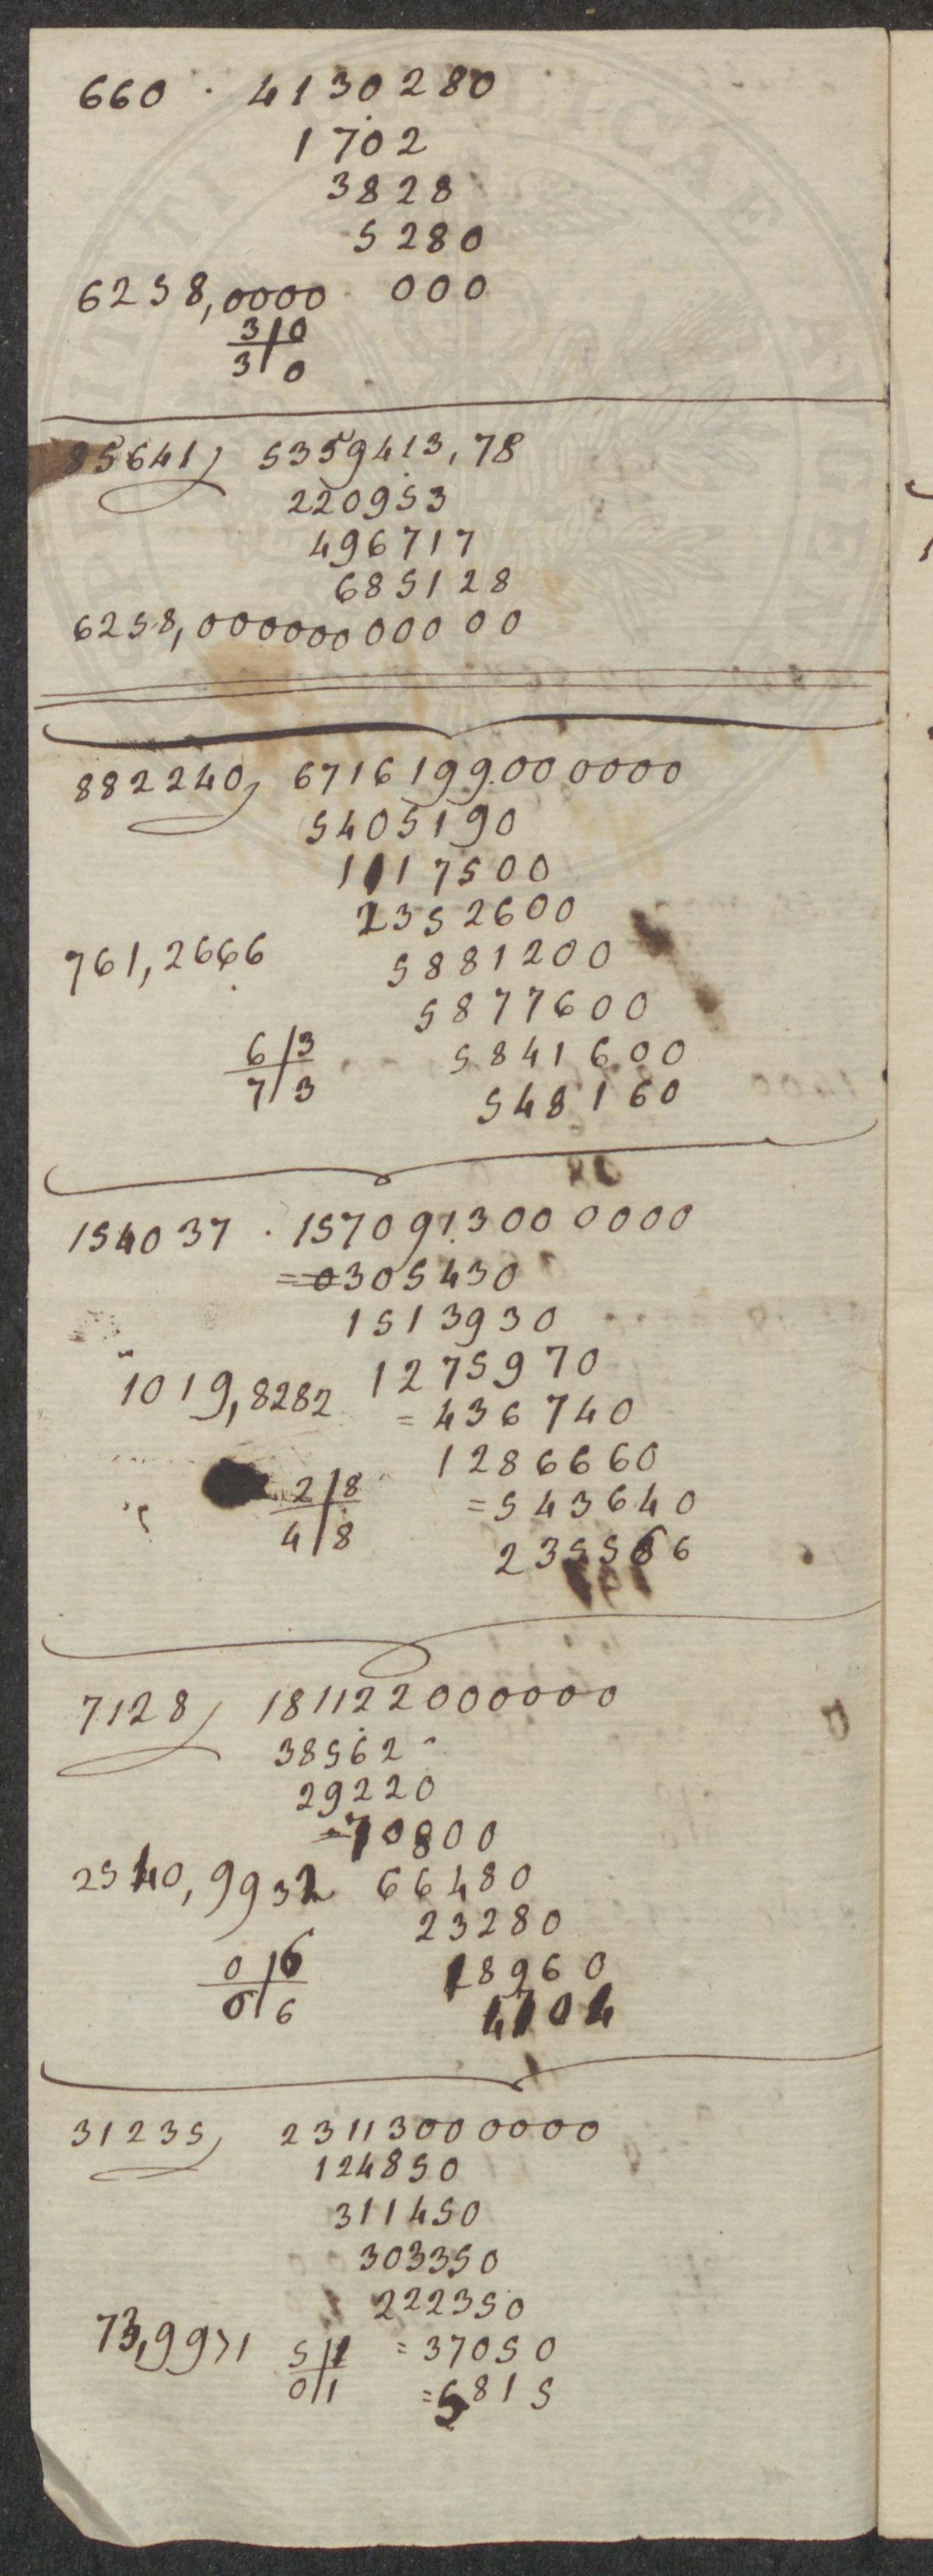 660 . 4130280
1702
3828
5280
6258,0000 000
3/0
3/0
85641) 5359413,78
220953
496717
685128
6258,00000000000
882240) 6716199.000000
5405190
1117500
2352600
761,2666 5881200
5877600
6/3 5841600
7/3 548160
154037 . 157091.3000000
=0305430
1513930
1019,8282 1275970
=436740
1286660
2/8 =543640
4/8 235566
7128) 181122000000
38562
29220
=70800
2540,9932 66480
23280
0/6 18960
0/6 4104
31235) 23113000000
124850
311450
303350
222350
73,9971 5/1 =37050
0/1 =5815